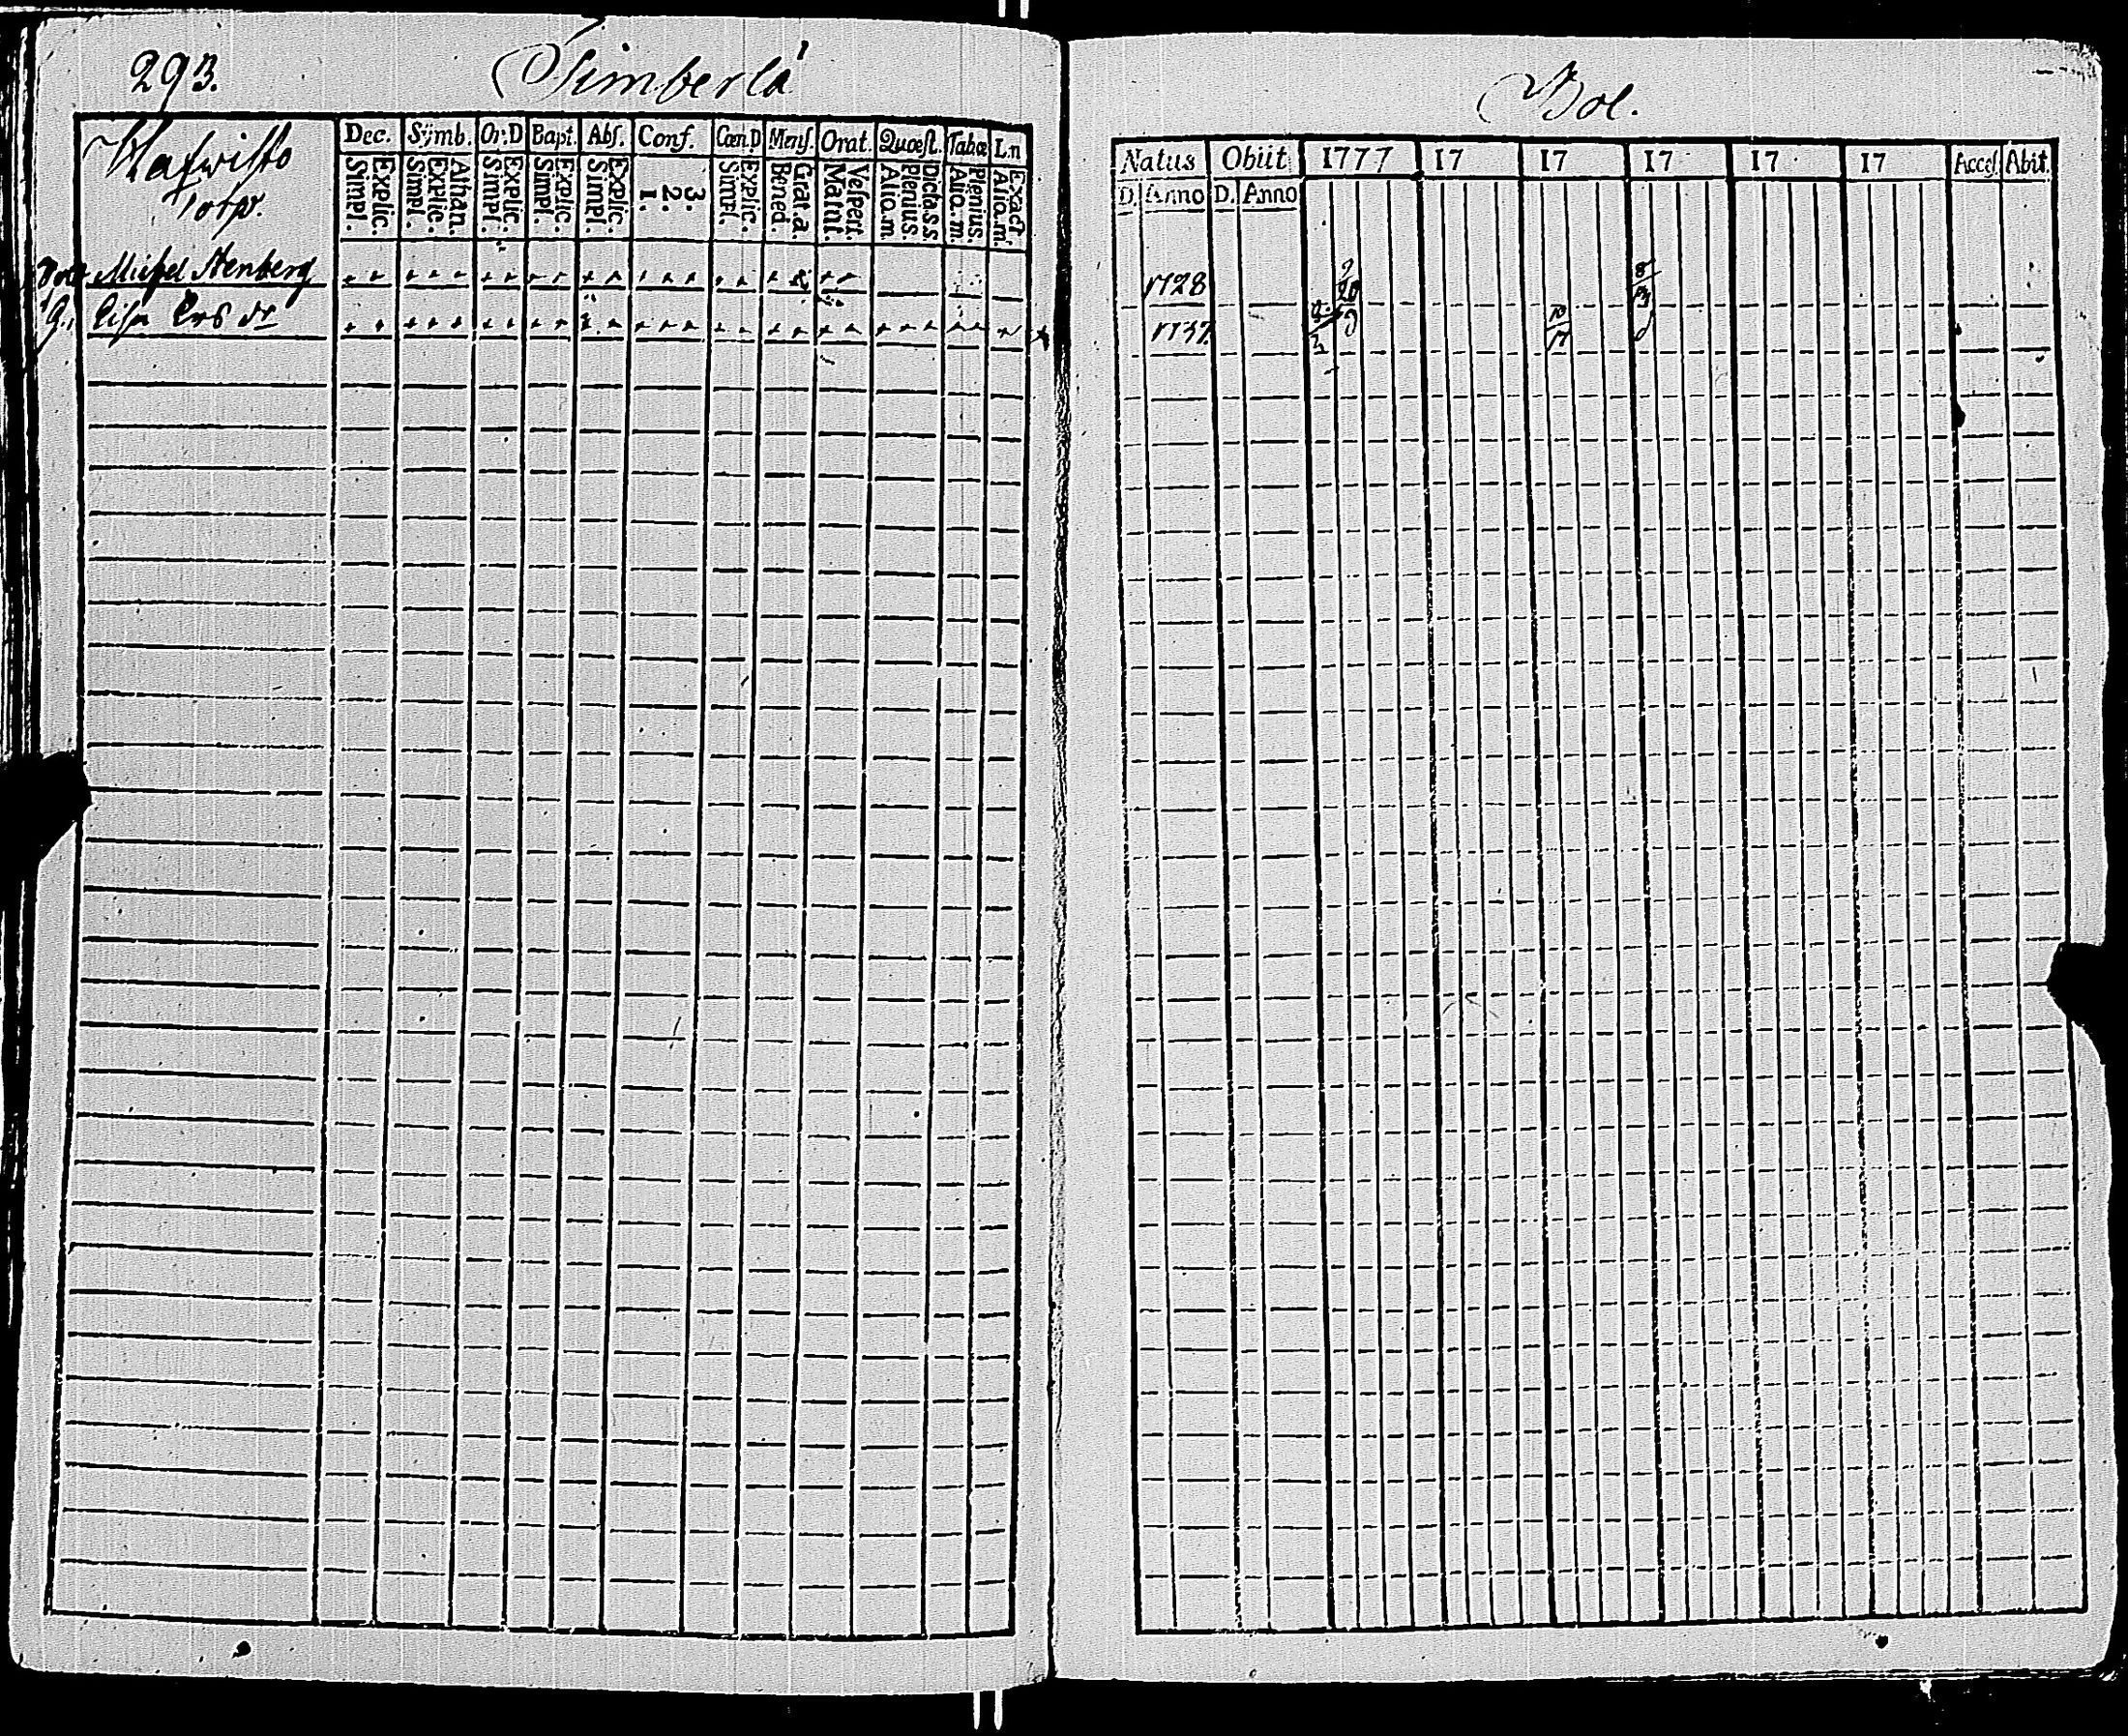 293. Timberlä
Dec. Sÿmb. Or.D Bapt. Abſ. Conf. Cœn.D Menſ. Orat. Quœſt. Tabœ L.n
Simpl. Explic. Simpl. Explic. Athan. Simpl. Explic. Simpl. Explic. Simpl. Explic. 1. 2. 3. Simpl. Explic. Bened. Grat.a. Matut. Veſpert. Alio.m. Plenius. Dicta.s.s. Alio.m. Plenius. Alio.m. Exact.
Torp.
Michel Stenberg
Lisa Ers dr
Bol.
Natus Obiit 1777 17 17 17 17 17 Acceſ. Abit.
D. Anno D. Anno
1728
1737